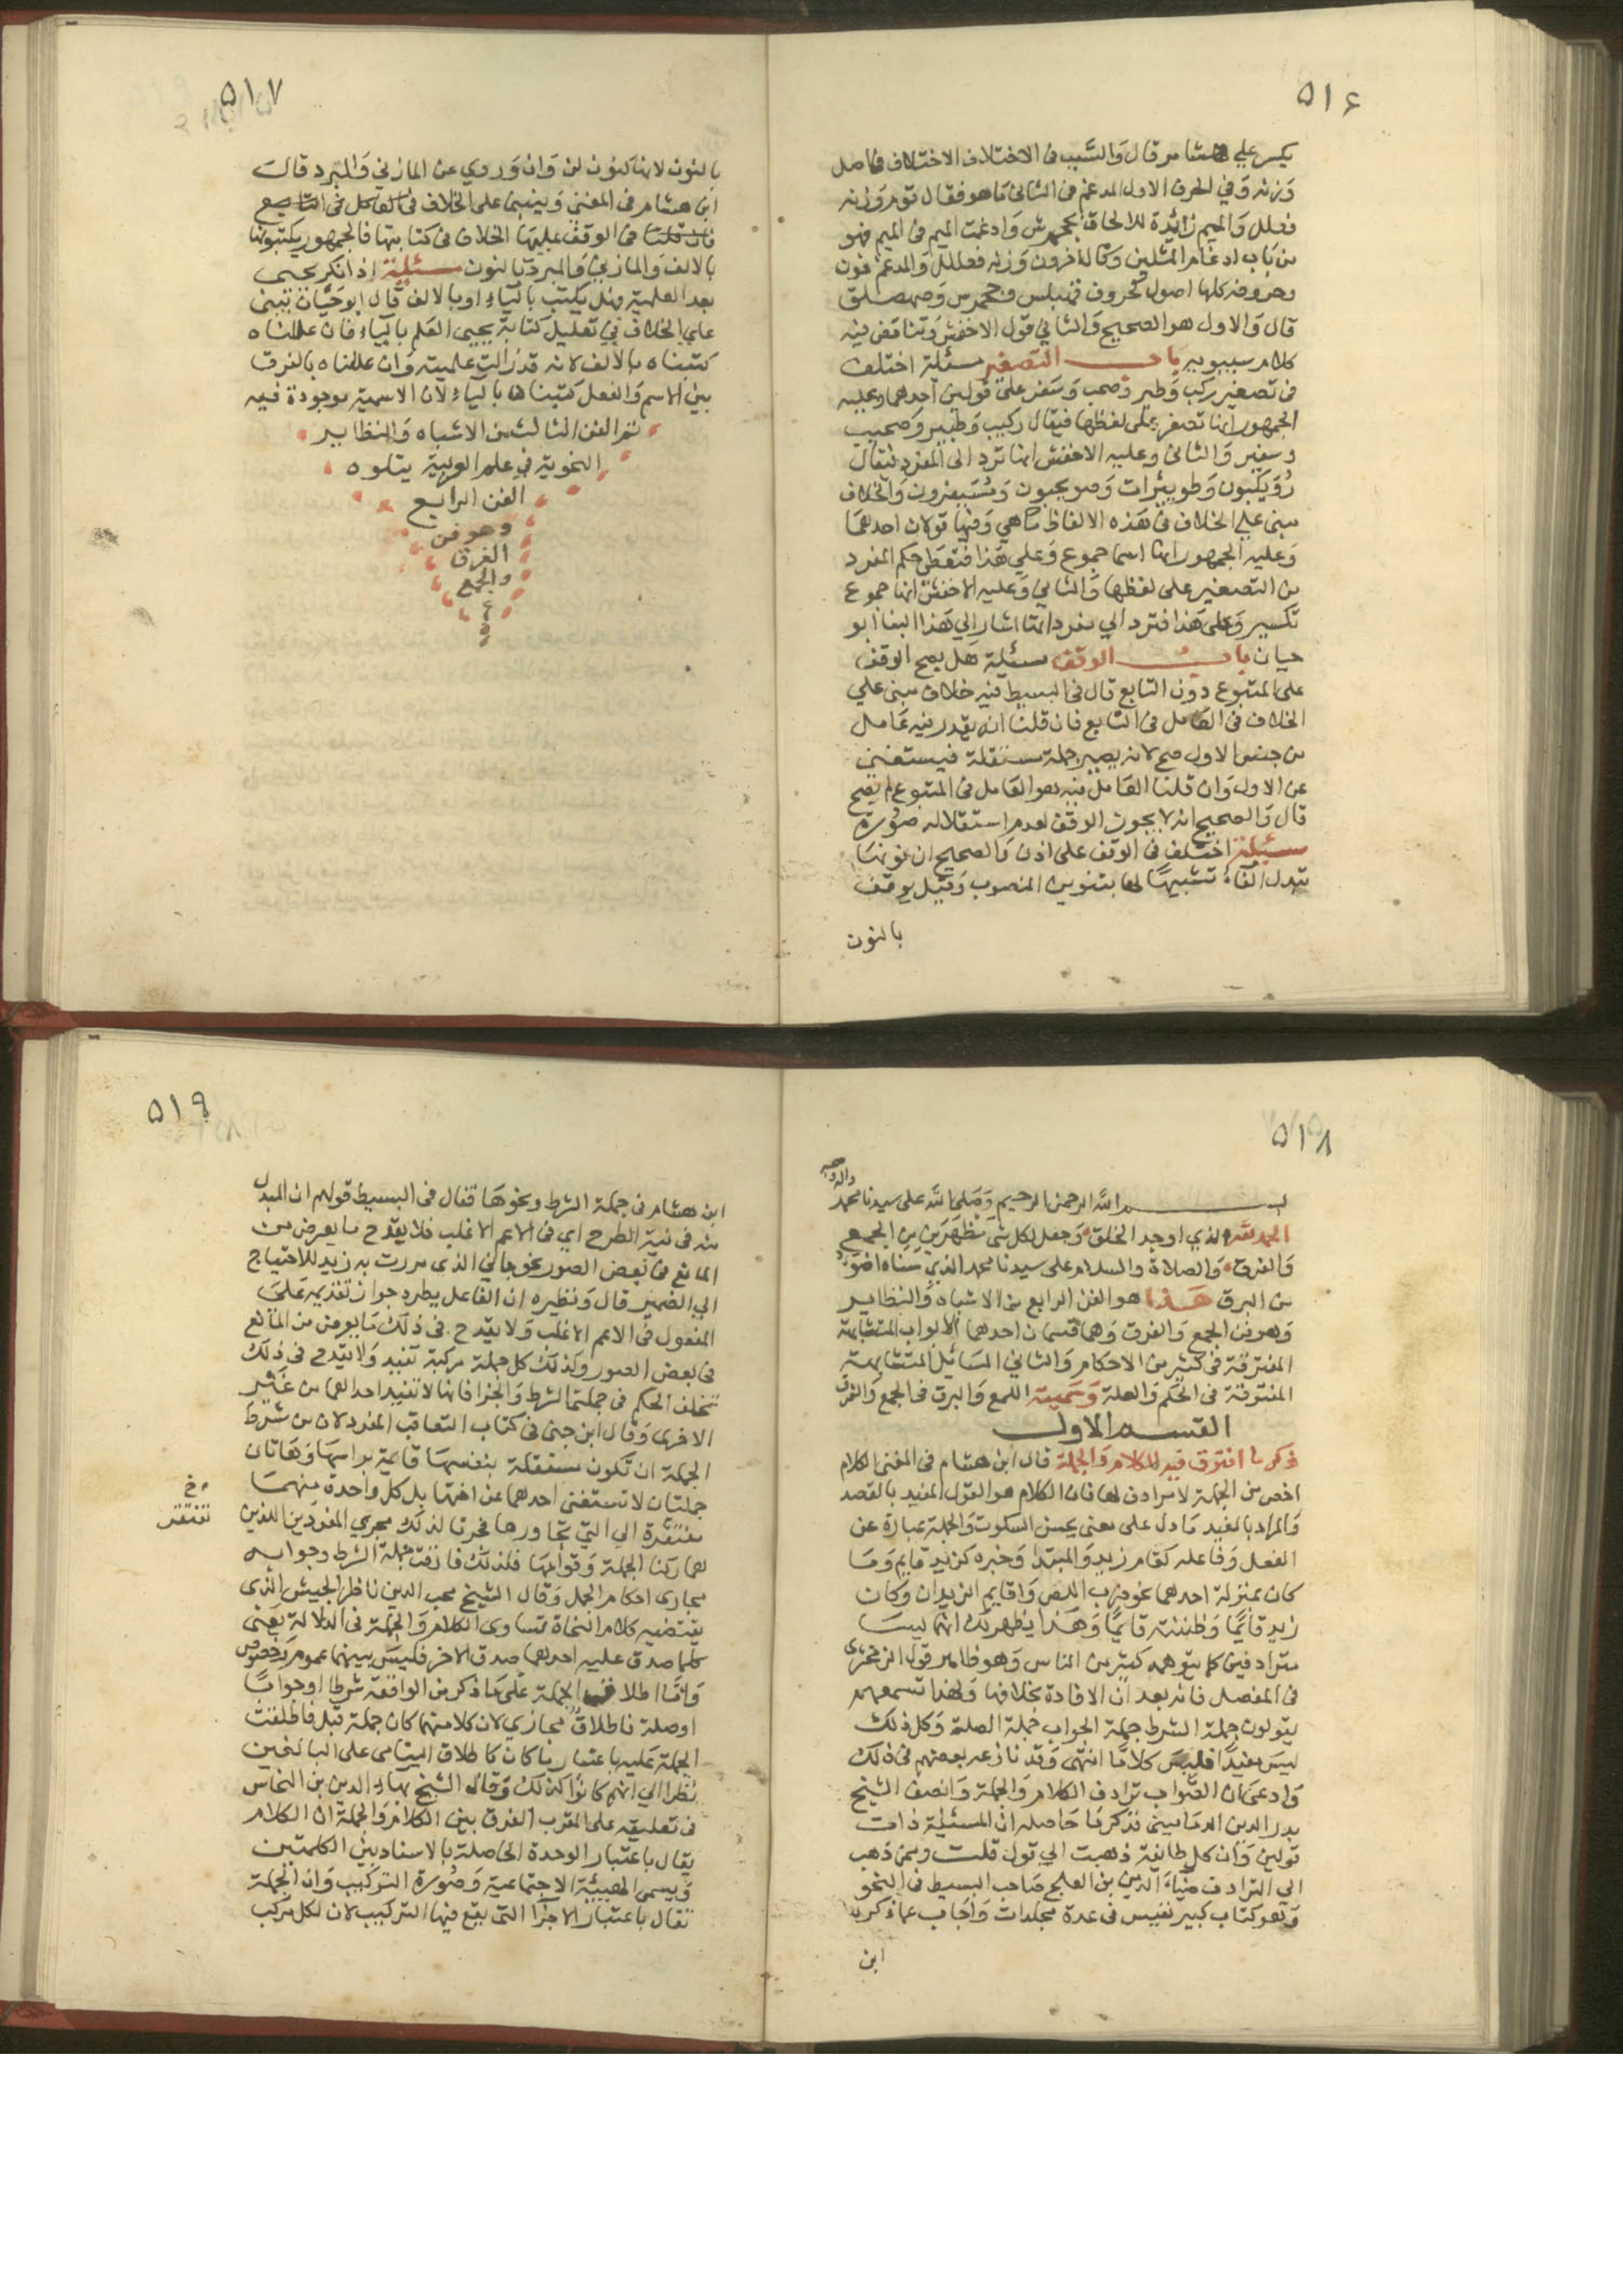 ٥١٦
يكسر على هشام قال والسبب في الاختلاف الاختلاف في اصل
وزنه وفي الحرف الاول المدغم في الثاني ما هو فقال قوم وزنه
فعلل والميم زائدة للالحاق بجحمرش وادغمت الميم في الميم فهو
من باب ادغام المثلين وقال اخرون وزنه فعللل والمدغم نون
وحروفه كلها اصول كحروف قهبلس وجحمرش وصهصلق
قال والاول هو الصحيح والثاني قول الاخفش وتناقض فيه
كلام سيبويه باب التصغير مسئلة اختلف
في تصغير ركب وطير وصحب وسفر على قولين احدهما وعليه
الجمهور انها تصغر على لفظها فيقال ركيب وطيير وصحيب
وسفير والثاني وعليه الاخفش انها ترد الى المفرد فيقال
رويكبون وطويئرات وصويحبون ومسيفرون والخلاف
مبني على الخلاف في هذه الالفاظ ما هي وفيها قولان احدهما
وعليه الجمهور انها اسما جموع وعلى هذا فتعطى حكم المفرد
من التصغير على لفظها والثاني وعليه الاخفش انها جموع
تكسير وعلى هذا فترد الى مفرداتها اشار الى هذا البنا ابو
حيان باب الوقف مسئلة هل يصح الوقف
على المتبوع دون التابع قال في البسيط فيه خلاف مبني علي
الخلاف في العامل في التابع فان قلنا انه يقدر فيه عامل
من جنس الاول صح لانه يصير جملة مستقلة فيستغني
عن الاول وان قلنا العامل فيه هو العامل في المتبوع لم يصح
قال والصحيح انه لا يجوز الوقف لعدم استقلاله صورة
مسئلة اختلف في الوقف على اذن والصحيح ان نونها
تبدل الفا تشبيها لها بتنوين المنصوب وقيل يوقف
بالنون
٥١٧
بالنون لانها كنون لن وان وروي عن المازني والمبرد قال
ابن هشام في المغني وينبني على الخلاف في
الوقف عليها الخلاف في كتابتها فالجمهور يكتبونها
بالالف والمازني والمبرد بالنون مسئلة اذا نكر يحيى
بعد العلمية فهل يكتب بالياء او بالالف قال ابو حيان تبنى
علي الخلاف في تعليل كتابة يحيى العلم بالياء فان عللناه
كتبناه بالالف لانه قد زالت علميته وان عللناه بالفرق
بين الاسم والفعل كتبناها بالياء لان الاسمية موجودة فيه
تم الفن الثالث من الاشباه والنظاير
النحوية في علم العربية يتلوه
الفن الرابع
وهو فن
الفرق
والجمع
٥١٨
بسم الله الرحمن الرحيم وصلى الله على سيدنا محمد
واله وصحبه
الحمد لله الذي اوجد الخلق وجعل لكل شى مظهرين من الجمع
والفرق والصلاة والسلام على سيدنا محمد الذي سناه اضوء
من البرق هذا هو الفن الرابع من الاشباه والنظاير
وهو فن الجمع والفرق وهما قسمان احدهما الابواب المتشابهة
المفترقة في كثير من الاحكام والثاني المسائل المتشابهة
المفترقة في الحكم والعلة وسميته اللمع والبرق في الجمع والفرق
القسم الاول
ذكر ما افترق فيه الكلام والجملة قال ابن هشام في المغني الكلام
اخص من الجملة لا مرادف لها فان الكلام هو القول المفيد بالقصد
والمراد بالمفيد ما دل على معنى يحسن السكوت والجملة عبارة عن
الفعل وفاعله كقام زيد والمبتدا وخبره كزيد قايم وما
كان بمنزلة احدهما نحو ضرب اللص واقايم الزيدان وكان
زيد قائما وظننته قائما وهذا يظهر لك انهما ليسا
مترادفين كما يتوهمه كثير من الناس وهو ظاهر قول الزمخشري
في المفصل فانه بعد ان الافادة بخلافها ولهذا تسمعهم
يقولون جملة الشرط جملة الجواب جملة الصلة وكل ذلك
ليس مفيدا فليس كلاما انتهى وقد نازعه بعضهم في ذلك
وادعى ان الصواب ترادف الكلام والجملة وانصف الشيخ
بدر الدين الدماميني فذكر ما حاصله ان المسئلة ذات
قولين وان كل طائفة ذهبت الي قول قلت وممن ذهب
الي الترادف ضياء الدين بن العلج صاحب البسيط في النحو
وهو كتاب كبير نفيس في عدة مجلدات واجاب عما ذكره
ابن
٥١٩
ابن هشام في جملة الشرط ونحوها فقال في البسيط قولهم ان المبدل
منه في نية الطرح اي في الاعم الاغلب فلا يقدح ما يعرض من
المانع في بعض الصور نحو جاني الذي مررت به زيد للاحتياج
الي الضمير قال ونظيره ان الفاعل يطرد جواز تقديمه على
المفعول في الاعم الاغلب ولا يقدح في ذلك ما يعرض من المانع
في بعض الصور وكذلك كل جملة مركبة تفيد ولا يقدح في ذلك
تخلف الحكم في جملتي الشرط والجزا فانها لا تفيد احداهما من غير
الاخرى وقال ابن جني في كتاب التعاقب المفرد لان من شرط
الجملة ان تكون مستقلة بنفسها قايمة براسها وهاتان
جملتان لا تستغني احدهما عن اختها بل كل واحدة منهما
مفتقرة الى التي تجاورها فجرتا لذلك مجري المفردين اللذين
تفتقر
هما ركنا الجملة وقوامها فلذلك فارقت جملة الشرط وجوابه
مجاري احكام الجمل وقال الشيخ محب الدين ناظر الجيش الذي
يقتضيه كلام النحاة تساوى الكلام والجملة في الدلالة يعني
كلما صدق عليه احدهما صدق الاخر فليس بينهما عموم وخصوص
واما اطلاق الجملة على ما ذكر من الواقعة شرطا او جوابا
او صلة فاطلاق مجازي لان كلا منهما كان جملة قبل فاطلقت
الجملة عليه باعتبار ما كان كاطلاق اليتامى على البالغين
نظرا الي انهم كانوا كذلك وقال الشيخ بهاء الدين بن النحاس
في تعليقه على المقرب الفرق بين الكلام والجملة ان الكلام
يقال باعتبار الوحدة الحاصلة بالاسناد بين الكلمتين
ويسمى الهيئة الاجتماعية وصورة التركيب وان الجملة
تقال باعتبار الاجزا التي يقع فيها التركيب لان لكل مركب